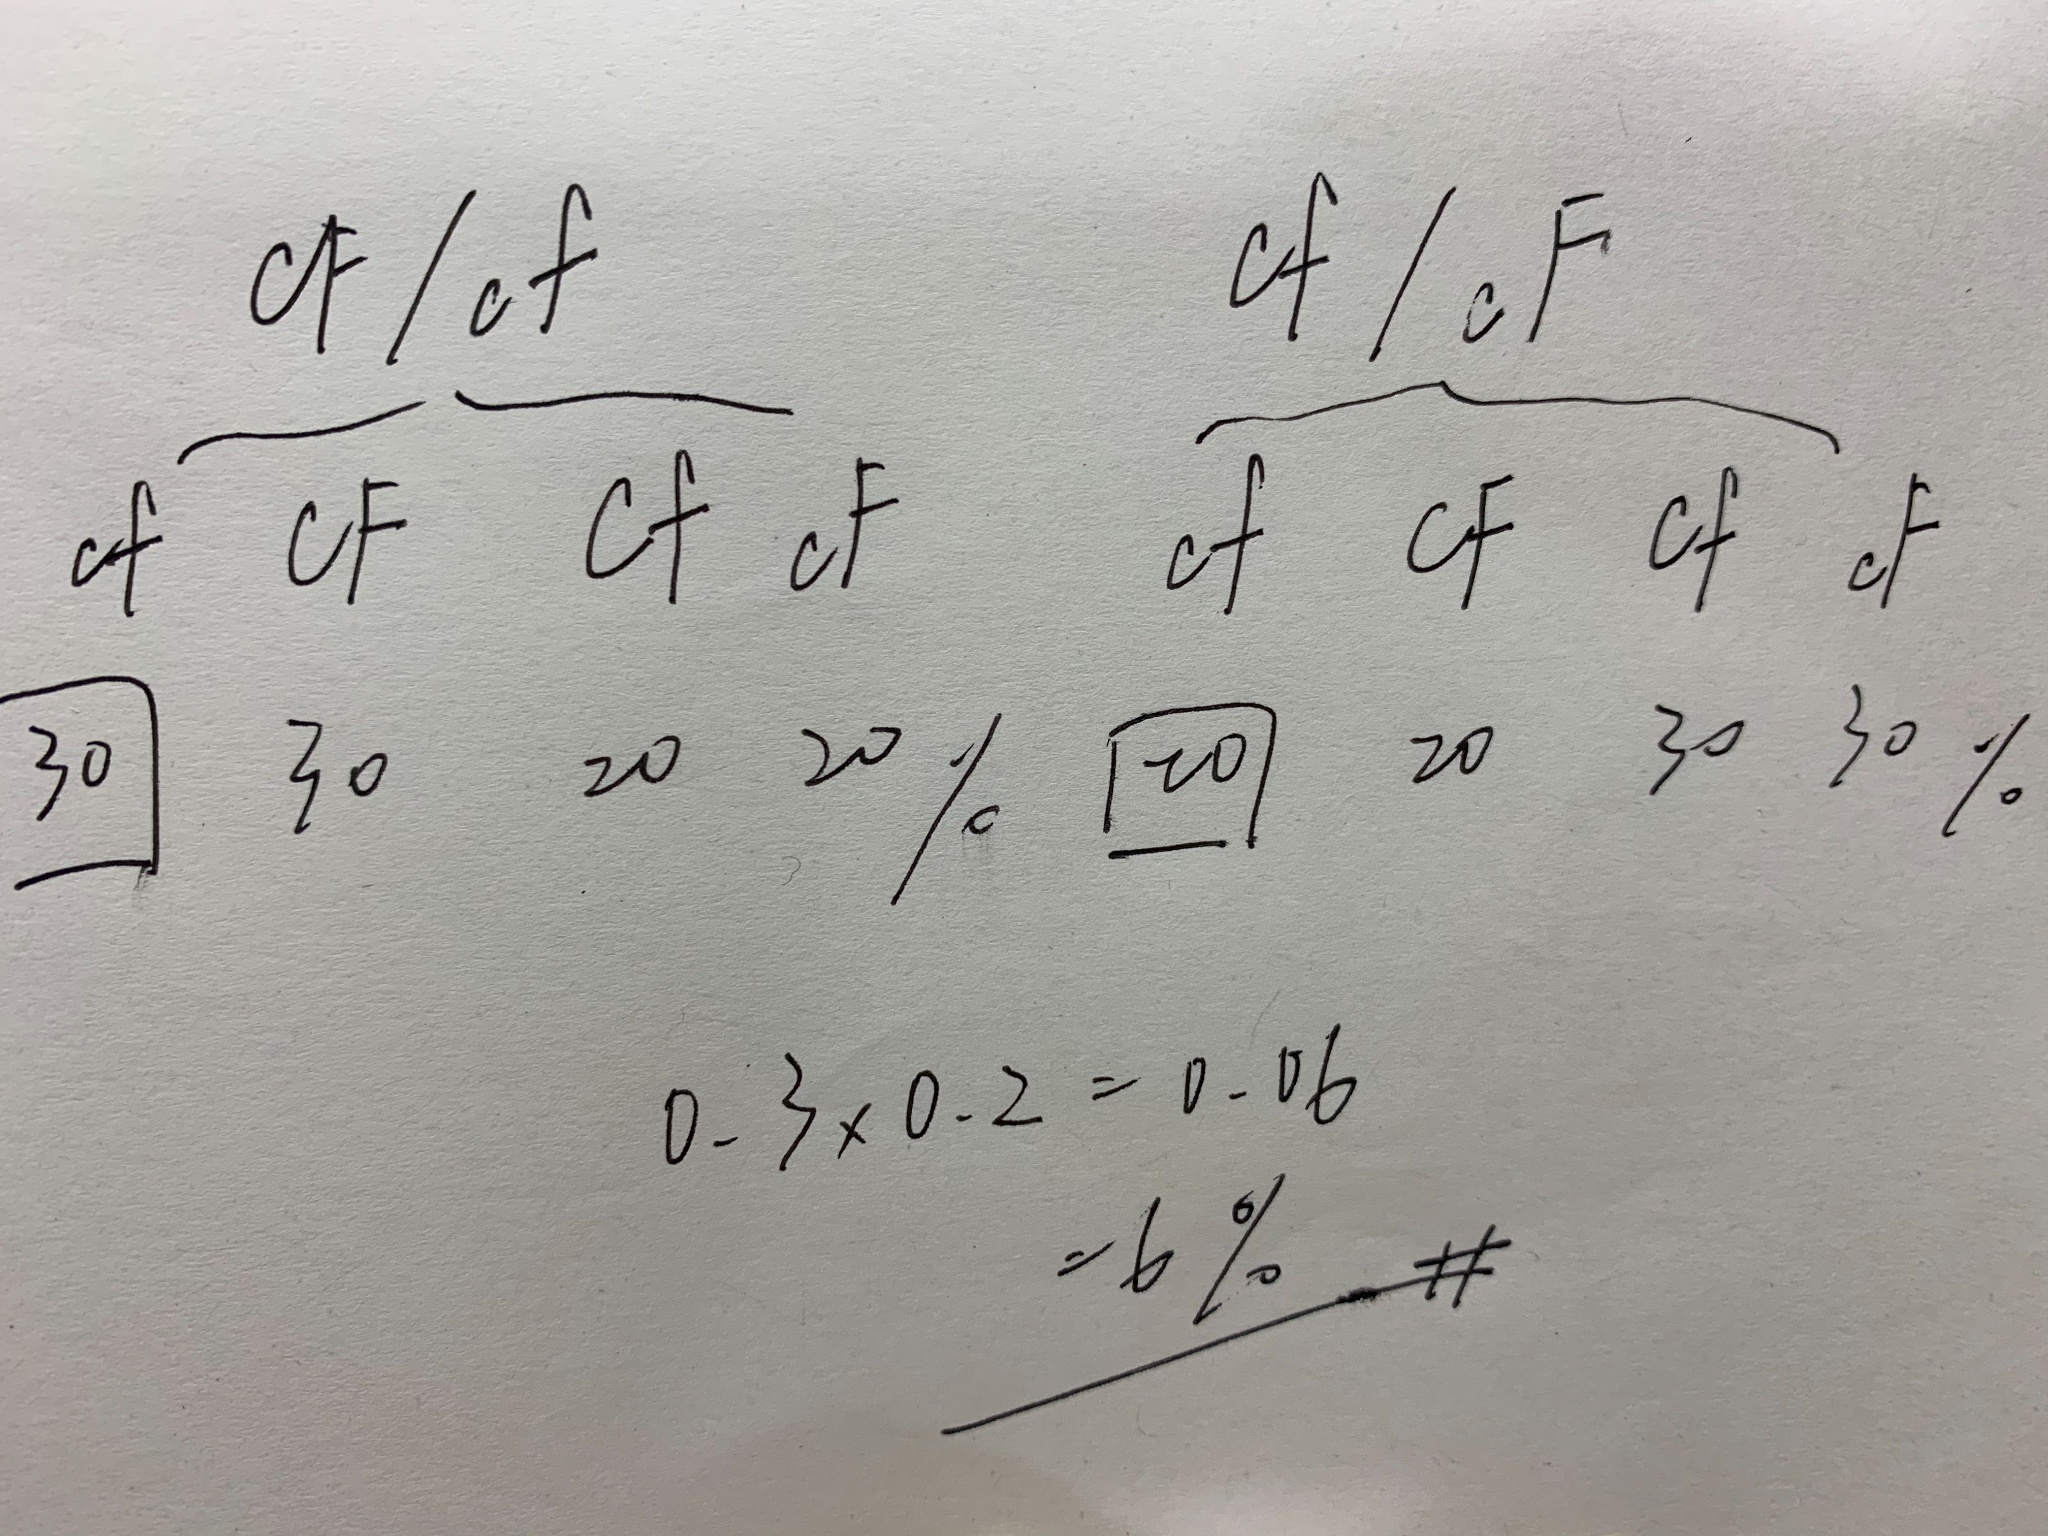 CF/cf Cf/cF
cf CF Cf cF cf CF Cf cF
30 30 20 20% 20 20 30 30%
0.3×0.2=0.06
=6% #